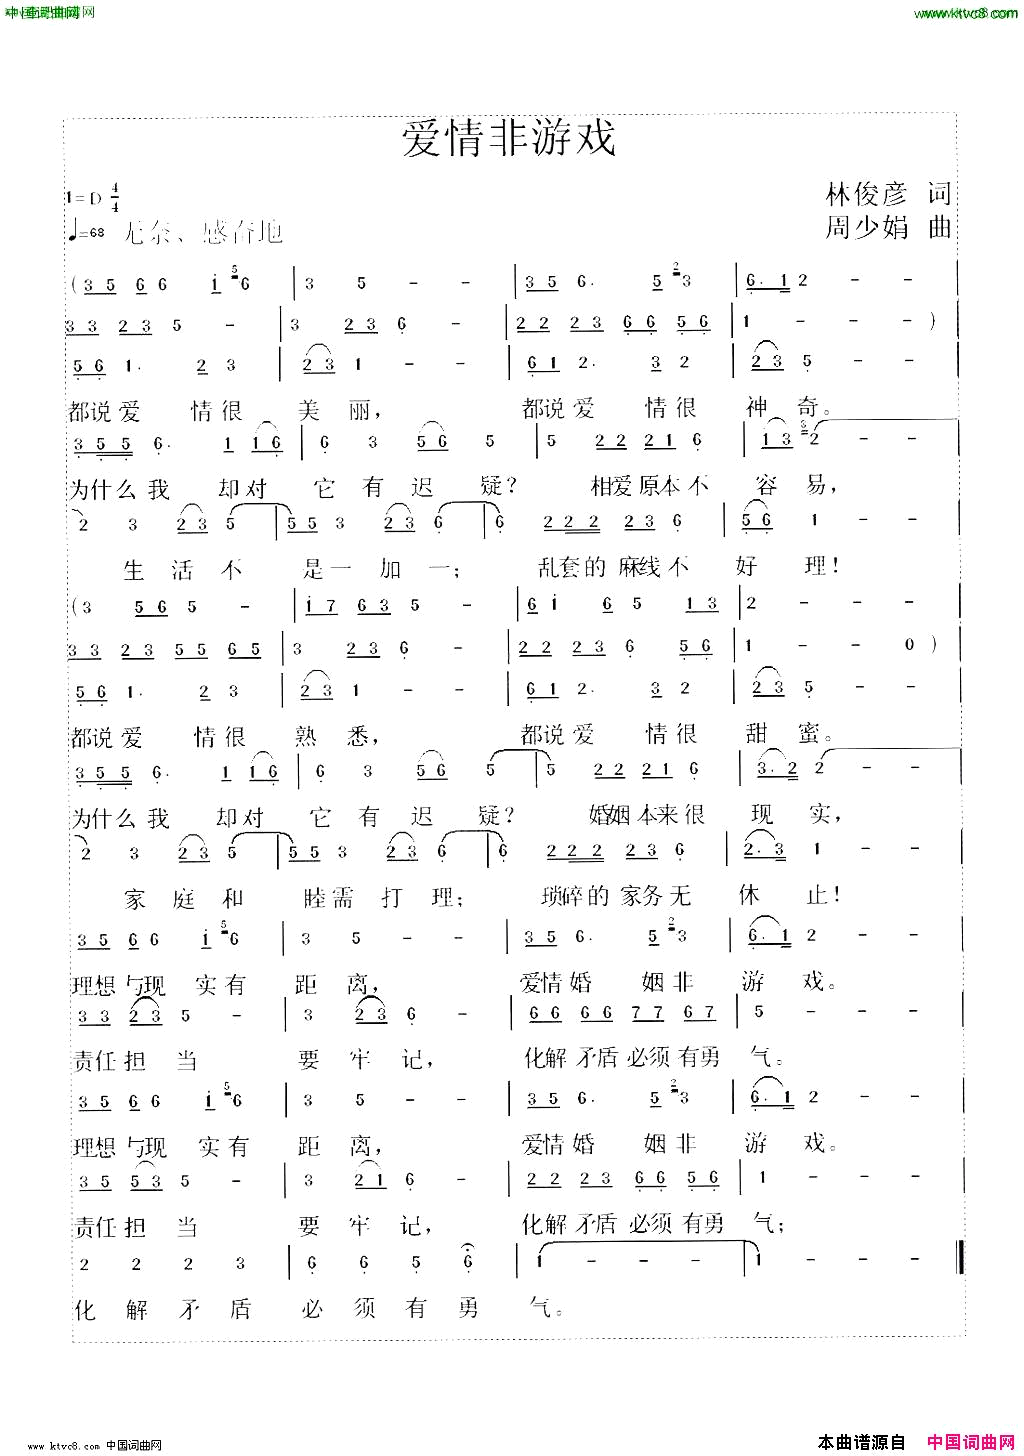 中国词曲网
www.ktvc8.com
爱情非游戏
1=D 4/4
林俊彦 词
♩=68
周少娟 曲
(3 5 6 6 i 5 6 | 3 5 - - | 3 5 6. 5 2 3 | 6. 1 2 - -
3 3 2 3 5 - | 3 2 3 6 - | 2 2 2 3 6 6 5 6 | 1 - - - )
5 6 1. 2 3 | 2 3 1 - - | 6 1 2. 3 2 | 2 3 5 - -
都说爱 情很 美丽, 都说爱 情很 神奇。
3 5 5 6. 1 1 6 | 6 3 5 6 5 | 5 2 2 2 1 6 | 1 3 3 2 - -
为什么我 却对 它有迟 疑? 相爱原本不 容易,
2 3 2 3 5 | 5 5 3 2 3 6 | 6 2 2 2 2 3 6 | 5 6 1 - -
生活不 是一加一; 乱套的麻线不 好理!
(3 5 6 5 - | i 7 6 3 5 - | 6 i 6 5 1 3 | 2 - - -
3 3 2 3 5 5 6 5 | 3 2 3 6 - | 2 2 2 3 6 5 6 | 1 - - 0 )
5 6 1. 2 3 | 2 3 1 - - | 6 1 2. 3 2 | 2 3 5 - -
都说爱 情很 熟悉, 都说爱 情很 甜蜜。
3 5 5 6. 1 1 6 | 6 3 5 6 5 | 5 2 2 2 1 6 | 3. 2 2 - -
为什么我 却对 它有迟 疑? 婚姻本来很 现实,
2 3 2 3 5 | 5 5 3 2 3 6 | 6 2 2 2 2 3 6 | 2. 3 1 - -
家庭和 睦需打理; 琐碎的家务无 休止!
3 5 6 6 i 5 6 | 3 5 - - | 3 5 6. 5 2 3 | 6. 1 2 - -
理想与现 实有 距离, 爱情婚 姻非 游戏。
3 3 2 3 5 - | 3 2 3 6 - | 6 6 6 6 7 7 6 7 | 5 - - -
责任担当 要牢记, 化解矛盾必须有勇 气。
3 5 6 6 i 5 6 | 3 5 - - | 3 5 6. 5 2 3 | 6. 1 2 - -
理想与现 实有 距离, 爱情婚 姻非 游戏。
3 5 5 3 5 - | 3 2 1 6 - | 2 2 2 3 6 6 5 6 | 1 - - -
责任担当 要牢记, 化解矛盾必须有勇 气;
2 2 2 3 | 6 6 5 6 | 1 - - - | 1 - - -
化解矛盾 必须有勇 气。
www.ktvc8.com 中国词曲网
本曲谱源自 中国词曲网